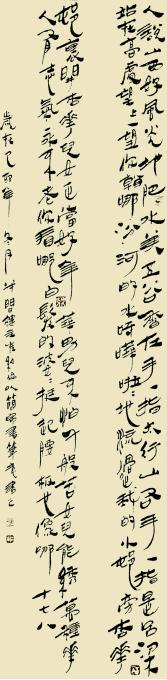 人說山西好風光地肥水美五谷香左手一指太行山右手一指是吕梁
站在高處望上一望你看那汾河的水呀嘩啦啦地流過我的小村旁杏花
村裏開杏花兒女正當好年華男兒不怕千般苦女兒能繡萬種花
人有志氣永不老你看那白髮的婆婆挺起腰板也像哪十七八
歲在己卯年冬月 以簡牘筆意書之